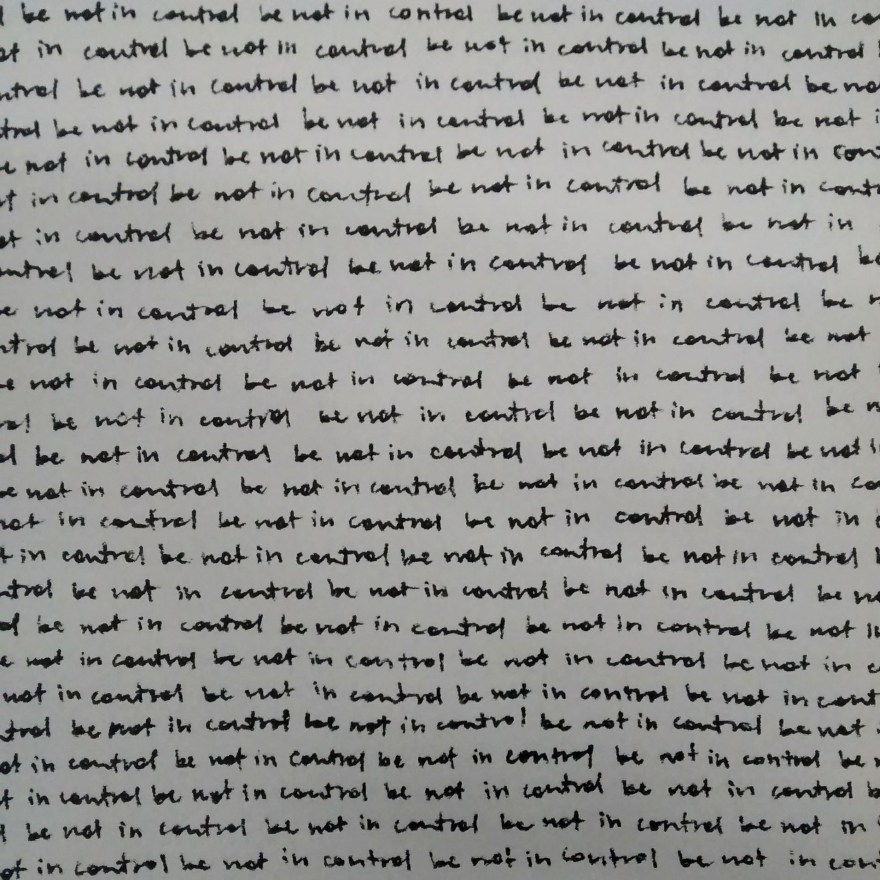 be not in control be not in control be not in control be not in
in control be not in control be not in control be not in control
be not in control be not in control be not in control be
be not in control be not in control be not in control be not
not in control be not in control be not in control be not in
in control be not in control be not in control be not in
in control be not in control be not in control be not in
be not in control be not in control be not in control
not in control be not in control be not in control be
be not in control be not in control be not in control be not
not in control be not in control be not in control be not
be not in control be not in control be not in control be
be not in control be not in control be not in control be not
be not in control be not in control be not in control be not in
not in control be not in control be not in control be not in
in control be not in control be not in control be not in control
be not in control be not in control be not in control be
be not in control be not in control be not in control be not
not in control be not in control be not in control be not in
not in control be not in control be not in control be not in
be not in control be not in control be not in control be not
in control be not in control be not in control be not in control be
in control be not in control be not in control be not in control
be not in control be not in control be not in control be not in
in control be not in control be not in control be not in